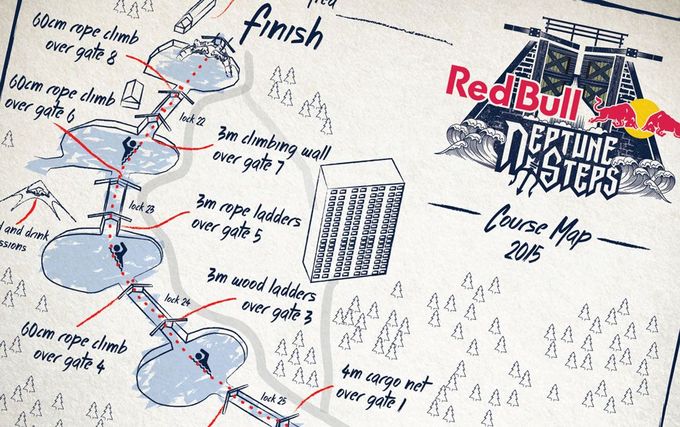 60cm rope climb
over gate 8
finish
60cm rope climb
over gate 6
lock 22
3m climbing wall
over gate 7
lock 23
3m rope ladders
over gate 5
and drink
lock 24
3m wood ladders
over gate 3
60cm rope climb
over gate 4
lock 25
4m cargo net
over gate 1
Red Bull
NEPTUNE
STEPS
Course Map
2015